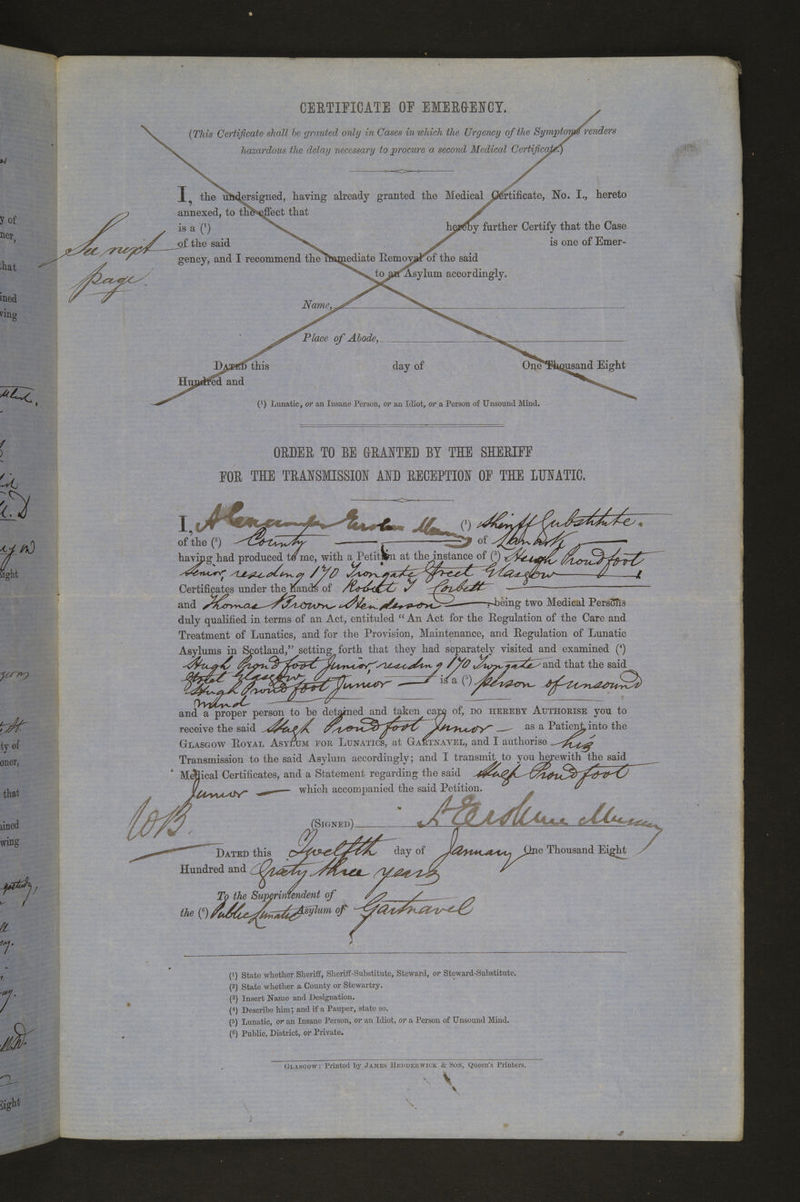 CERTIFICATE OF EMERGENCY.
(This Certificate shall be granted only in Cases in which the Urgency of the Symptoms renders
hazardous the delay necessary to procure a second Medical Certificate.)
I, the undersigned, having already granted the Medical Certificate, No. I., hereto
annexed, to the effect that
is a (¹) hereby further Certify that the Case
of the said is one of Emer-
gency, and I recommend the immediate Removal of the said
to an Asylum accordingly.
See next
page.
Name,
Place of Abode,
DATED this day of One Thousand Eight
Hundred and
(¹) Lunatic, or an Insane Person, or an Idiot, or a Person of Unsound Mind.
ORDER TO BE GRANTED BY THE SHERIFF
FOR THE TRANSMISSION AND RECEPTION OF THE LUNATIC.
I, Alexander Erskine Murray (¹) Sheriff Substitute
of the (²) County of Lanark
having had produced to me, with a Petition at the instance of (³) Hugh Proudfoot
Senior, residing 170 Trongate Street Glasgow
Certificates under the hands of Robert T Corbett
and Thomas Brown Henderson being two Medical Persons
duly qualified in terms of an Act, entituled "An Act for the Regulation of the Care and
Treatment of Lunatics, and for the Provision, Maintenance, and Regulation of Lunatic
Asylums in Scotland," setting forth that they had separately visited and examined (⁴)
Hugh Proudfoot Junior, residing 170 Trongate and that the said
Street Glasgow
Hugh Proudfoot Junior is a (⁵) person of unsound
mind
and a proper person to be detained and taken care of, DO HEREBY AUTHORISE you to
receive the said Hugh Proudfoot Junior as a Patient into the
GLASGOW ROYAL ASYLUM FOR LUNATICS, at GARTNAVEL, and I authorise his
Transmission to the said Asylum accordingly; and I transmit to you herewith the said
Medical Certificates, and a Statement regarding the said Hugh Proudfoot
Junior which accompanied the said Petition.
WB.
(SIGNED) A Erskine Murray
DATED this Twelfth day of January One Thousand Eight
Hundred and Sixty three years
To the Superintendent of
the (⁶) Public Lunatic Asylum of Gartnavel
(¹) State whether Sheriff, Sheriff-Substitute, Steward, or Steward-Substitute.
(²) State whether a County or Stewartry.
(³) Insert Name and Designation.
(⁴) Describe him; and if a Pauper, state so.
(⁵) Lunatic, or an Insane Person, or an Idiot, or a Person of Unsound Mind.
(⁶) Public, District, or Private.
GLASGOW: Printed by JAMES HEDDERWICK & SON, Queen's Printers.